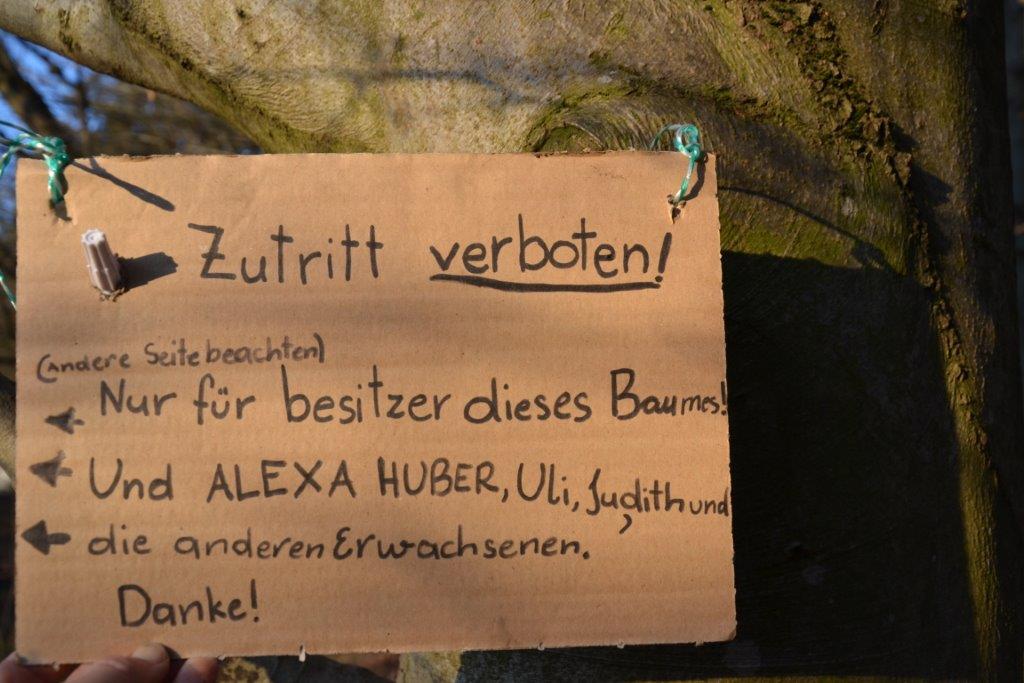 Zutritt verboten!
(Andere Seite beachten)
Nur für besitzer dieses Baumes!
Und ALEXA HUBER, Uli, Judith und
die anderen Erwachsenen.
Danke!